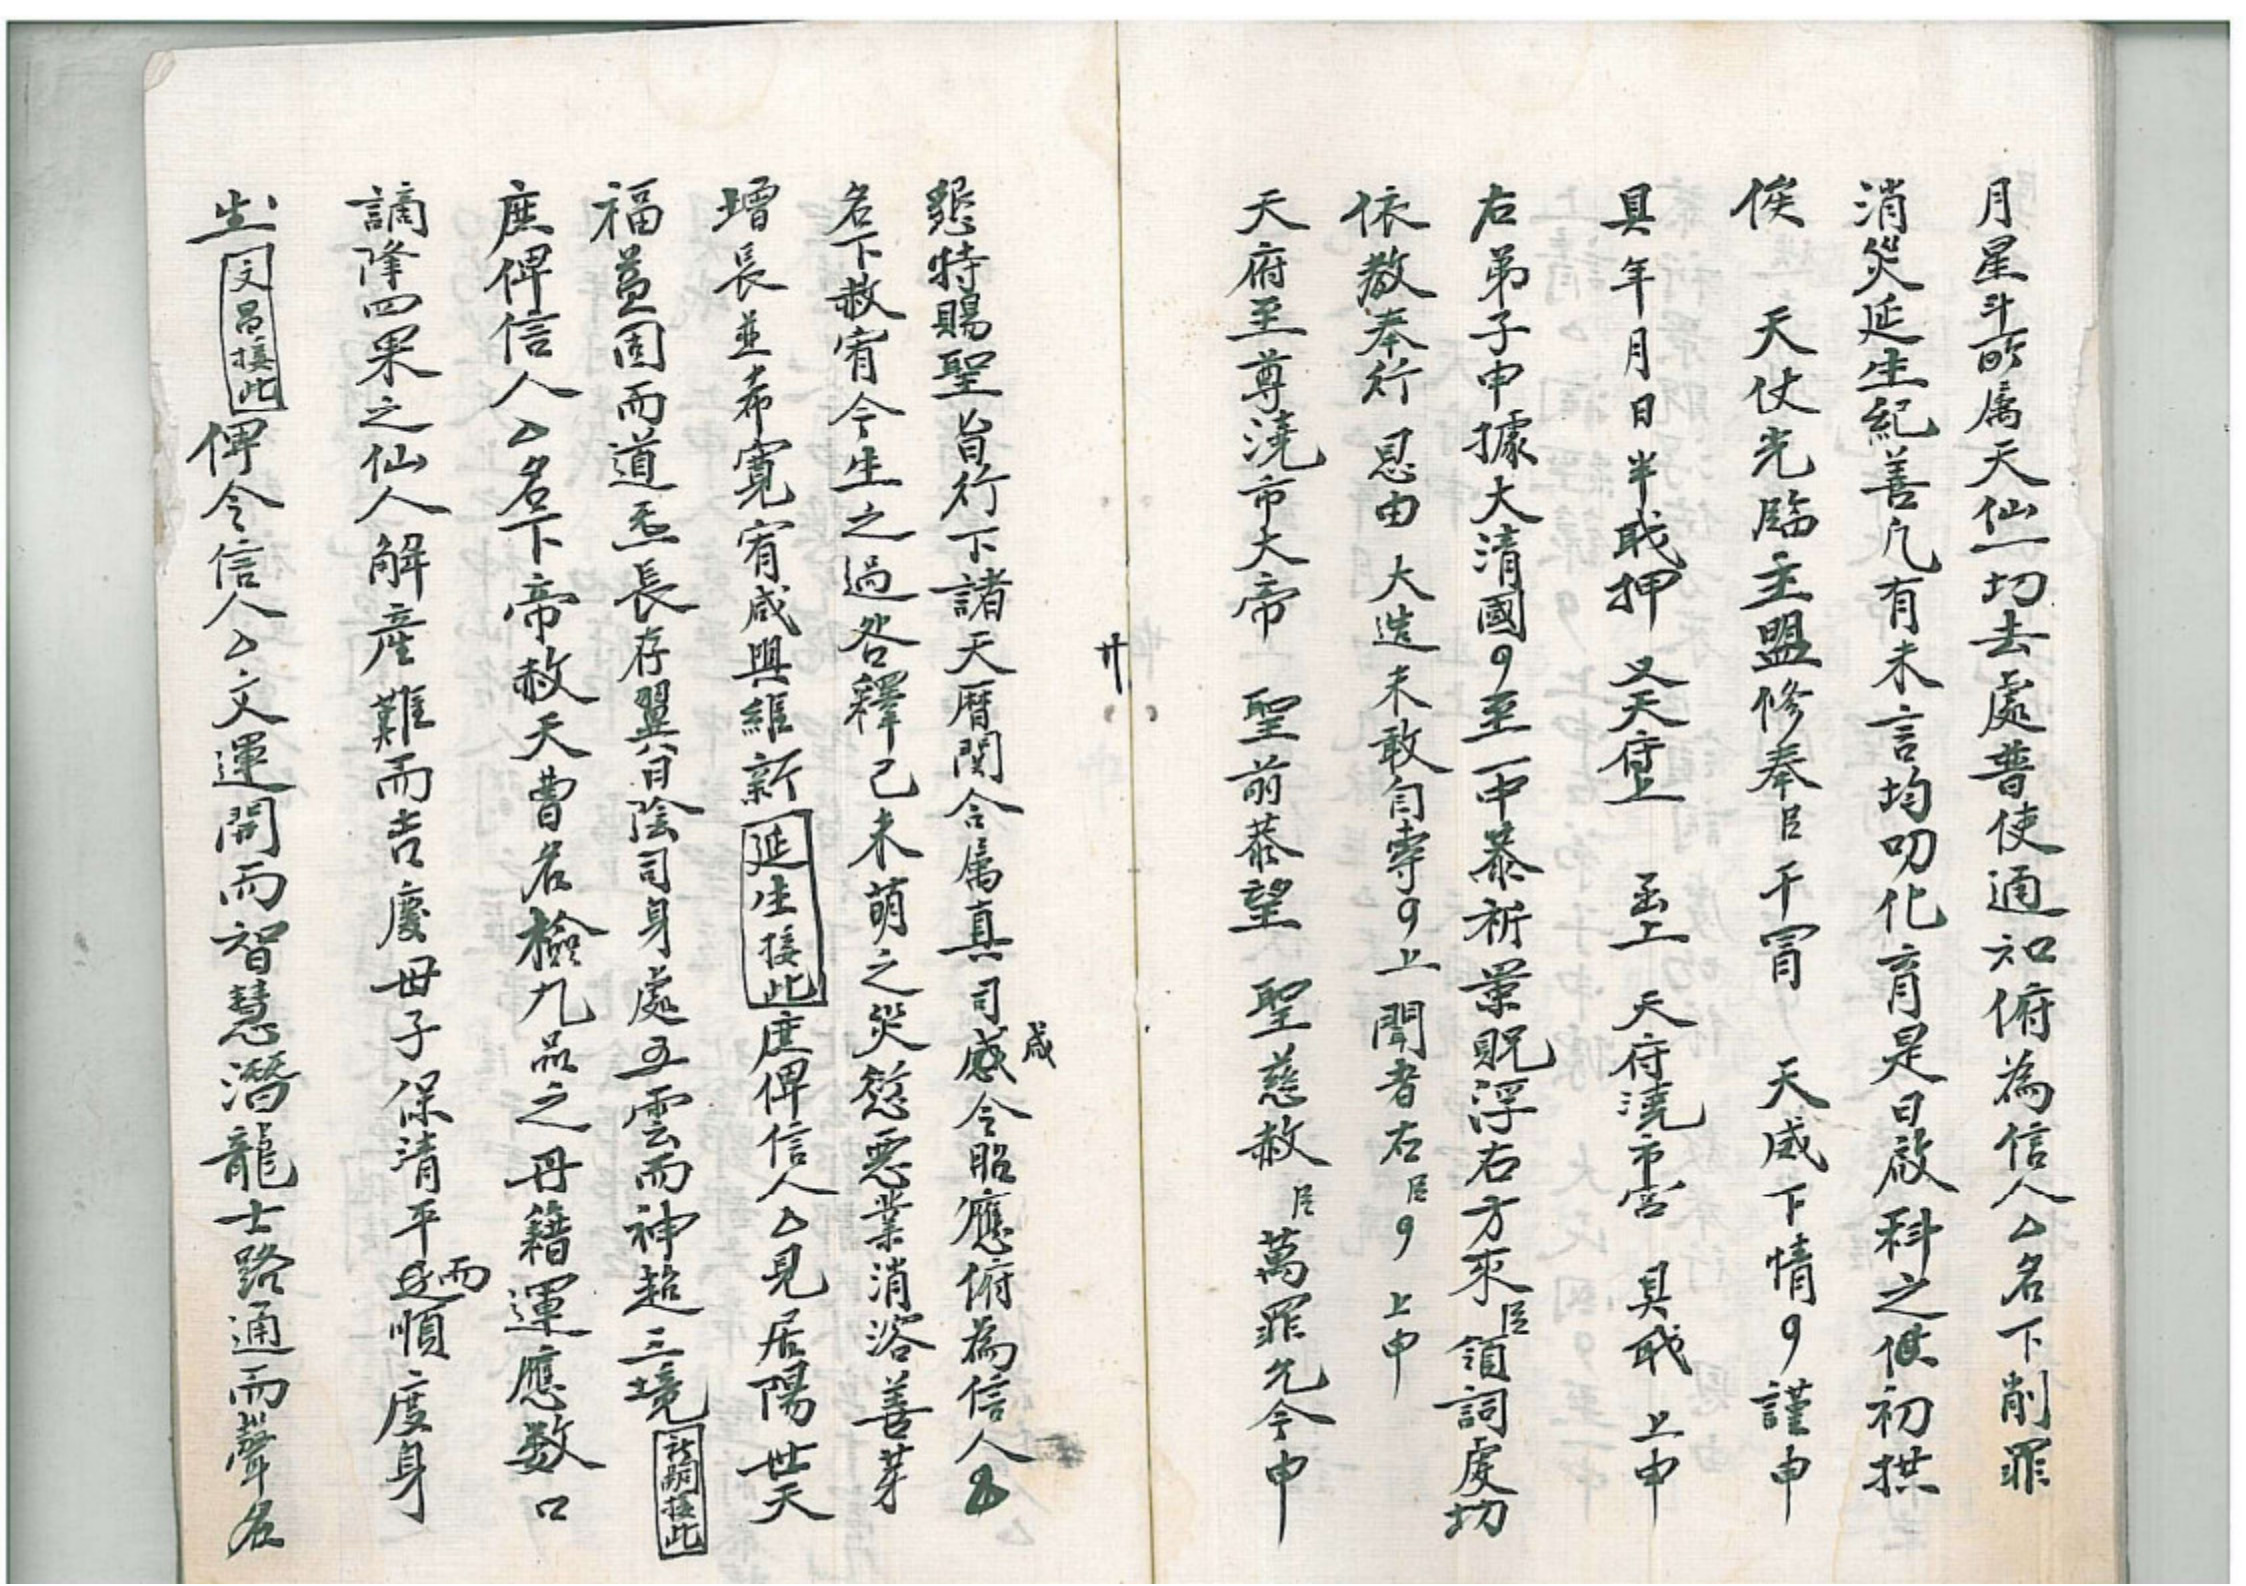 月星斗所属天仙一切去處普使通知俯為信人厶名下削罪
消災延生紀善凢有未言均叨化育是日啟科之候初拱
俟 天仗光臨主盟修奉臣干冒 天威下情9謹申
具年月日半职押 又天府上 函上 天府浇市宮 具职 上申
右弟子申據大清國9至一中恭祈 景貺浮右方來臣領詞虔切
依教奉行 恩由 大造未敢自專9上聞者右臣9 上申
天府至尊浇市大帝 聖前恭望 聖慈赦臣萬罪允令申
廿
懇特賜聖旨行下諸天曆関令属真司感咸令昭應俯為信人厶
名下赦宥今生之過咎釋己未萌之災愆惡業消溶善芽
增長並希寬宥咸與維新 延生接此 庶俾信人厶見居陽世天
福益固而道炁長存翼日陰司身處五雲而神超三境 祈嗣接此
庶俾信人厶名下帝赦天曹名檢九品之丹籍運應数口
謫降四果之仙人解産難而吉慶母子保清平而順度身
生 文昌接此 俾令信人厶文運開而智慧潛龍士路通而聲名